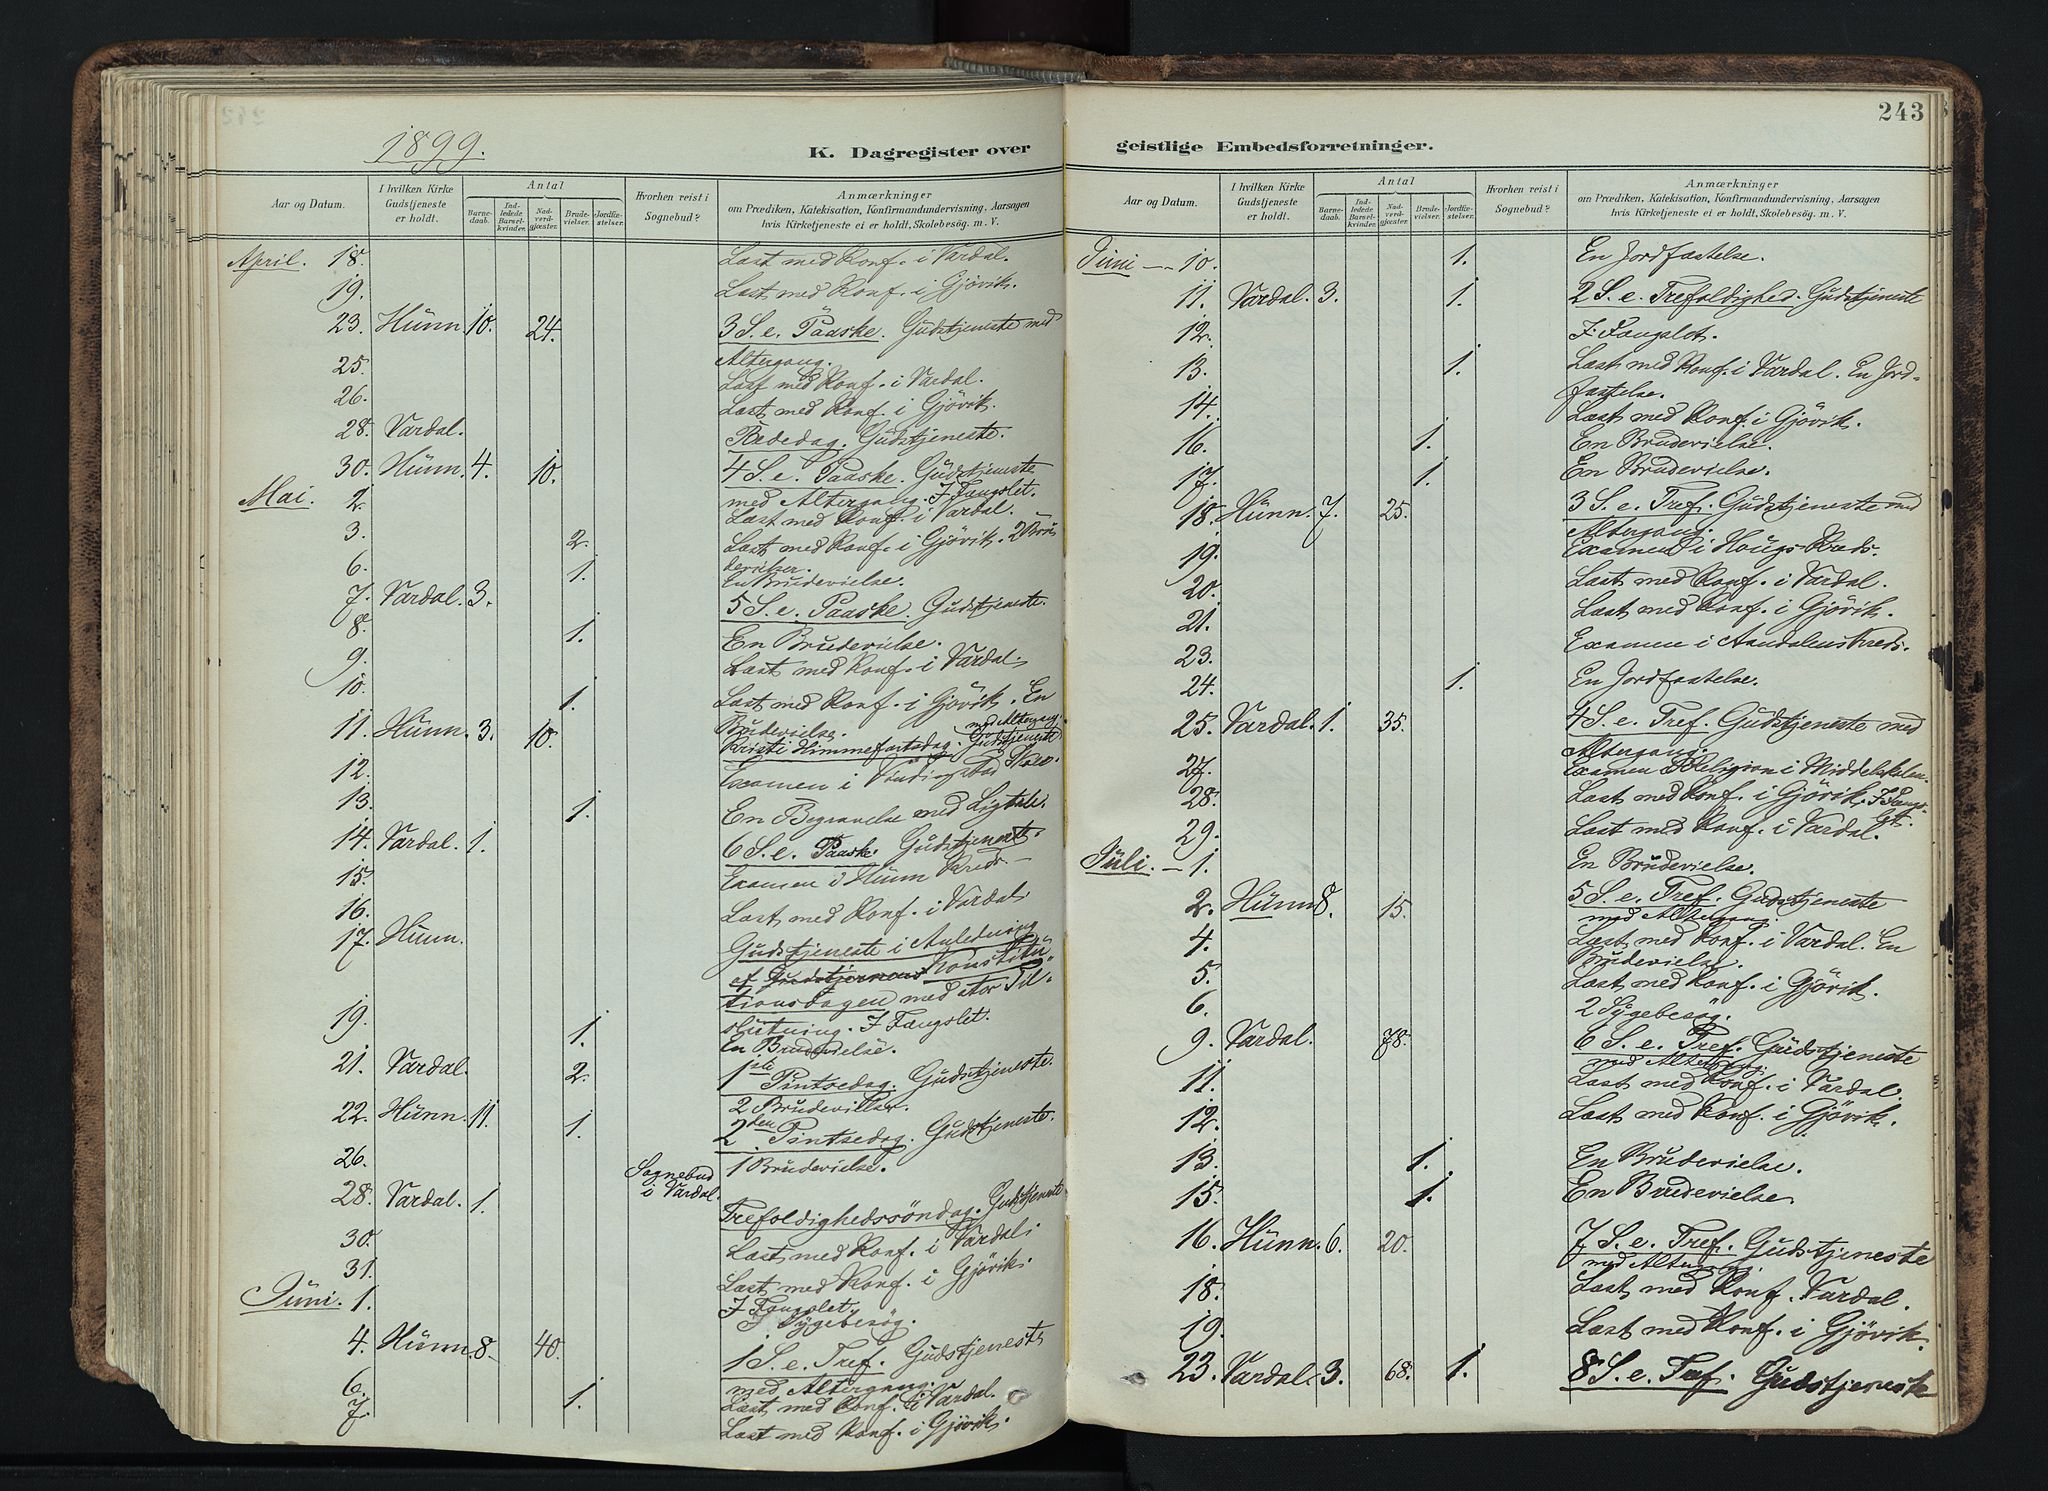 1899.
K. Dagregister over
Aar og Datum. I hvilken Kirke Gudstjeneste er holdt. Antal Barnedaab. Indledede Barselkvinder. Nadverdgjæster. Brudevielser. Jordfæstelser. Hvorhen reist i Sognebud? Anmærkninger
om Prædiken, Katekisation, Konfirmandundervisning, Aarsagen
hvis Kirketjeneste ei er holdt, Skolebesøg. m. V.
April. 18. Læst med Konf. i Vardal.
19. Læst med Konf. i Gjövik.
23. Hunn 10. 24. 3 S. e. Paaske. Gudstjeneste med
Altergang.
25. Læst med Konf. i Vardal.
26. Læst med Konf. i Gjövik.
28. Vardal. Bededag. Gudstjeneste.
30. Hunn. 4. 10. 4 S. e. Paaske. Gudstjeneste
med Altergang. I Fængslet.
Mai. 2. Læst med Konf. i Vardal.
3. 2. Læst med Konf. i Gjövik. 2 Bru
devielser.
6. 1. En Brudevielse.
7. Vardal. 3. 5 S. e. Paaske. Gudstjeneste.
8. 1. En Brudevielse.
9. Læst med Konf. i Vardal.
10. 1. Læst med Konf. i Gjövik. En
Brudevielse.
11. Hunn. 3. 10. Kristi Himmelfartsdag. Gudstjeneste med Altergang.
12. Examen i Skole.
13. 1. En Begravelse med Ligtale.
14. Vardal. 1. 6 S. e. Paaske. Gudstjeneste.
15. Examen i Hunn Kreds.
16. Læst med Konf. i Vardal.
17. Hunn. Gudstjeneste i Anledning
af Konstitu
tionsdagen med stor Til-
slutning. I Fængslet.
19. 1. En Brudevielse.
21. Vardal. 2. 1ste Pintsedag. Gudstjeneste.
2 Brudevielser.
22. Hunn. 11. 1. 2den Pintsedag. Gudstjeneste.
1 Brudevielse.
26. Sognebud
i Vardal.
28. Vardal. 1. Trefoldighedssöndag. Gudstjeneste
30. Læst med Konf. i Vardal.
31. Læst med Konf. i Gjövik.
Juni. 1. I Fængslet.
Sygebesög.
4. Hunn. 8. 40. 1 S. e. Tref. Gudstjeneste
med Altergang.
6. 1. Læst med Konf. i Vardal.
7. Læst med Konf. i Gjövik.
243
geistlige Embedsforretninger.
Aar og Datum. I hvilken Kirke Gudstjeneste er holdt. Antal Barnedaab. Indledede Barselkvinder. Nadverdgjæster. Brudevielser. Jordfæstelser. Hvorhen reist i Sognebud? Anmærkninger
om Prædiken, Katekisation, Konfirmandundervisning, Aarsagen
hvis Kirketjeneste ei er holdt, Skolebesøg. m. V.
Juni 10. 1. En Jordfæstelse.
11. Vardal. 3. 1. 2 S. e. Trefoldighed. Gudstjeneste
12. I Fængslet.
13. 1. Læst med Konf. i Vardal. En Jord-
fæstelse.
14. Læst med Konf. i Gjövik.
16. 1. En Brudevielse.
17. 1. En Brudevielse.
18. Hunn. 7. 25. 3 S. e. Tref. Gudstjeneste med
Altergang.
19. Examen i Hougs Kreds.
20. Læst med Konf. i Vardal.
21. Læst med Konf. i Gjövik.
23. Examen i Aandalens Kreds.
24. 1. En Jordfæstelse.
25. Vardal. 1. 35. 4 S. e. Tref. Gudstjeneste med
Altergang.
27. Examen i Religion i Middelskolen.
28. Læst med Konf. i Gjövik. I Fængs-
let.
29. Læst med Konf. i Vardal.
Juli. 1. En Brudevielse.
2. Hunn 8. 15. 5 S. e. Tref. Gudstjeneste
med Altergang.
4. Læst med Konf. i Vardal. En
Brudevielse.
5. Læst med Konf. i Gjövik.
6. 2 Sygebesög.
9. Vardal. 78. 6 S. e. Tref. Gudstjeneste
med Altergang.
11. Læst med Konf. i Vardal.
12. Læst med Konf. i Gjövik.
13. 1. En Brudevielse.
15. 1. En Brudevielse
16. Hunn. 6. 20. 7 S. e. Tref. Gudstjeneste
med Altergang.
18. Læst med Konf. Vardal.
19. Læst med Konf. i Gjövik.
23. Vardal. 3. 68. 1. 8 S. e. Tref. Gudstjeneste